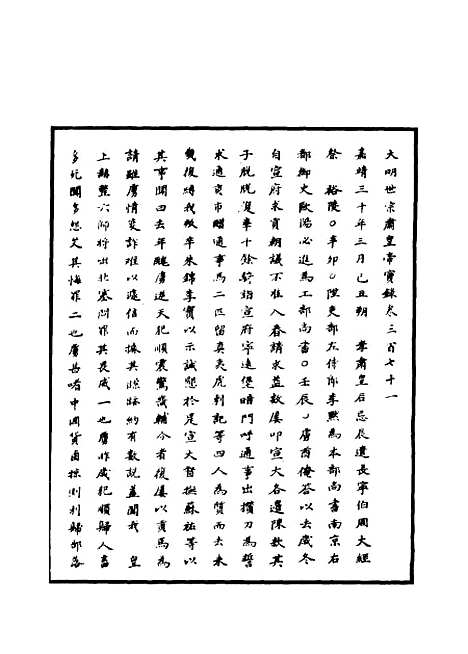 大明世宗肅皇帝實錄卷三百七十一
嘉靖三十年三月己丑朔　孝肅皇后忌辰遣長寧伯周大經
祭　裕陵○辛卯○陞吏部左侍郎李默為本部尚書南京右
都御史歐陽必進為工部尚書○壬辰○虜酋俺荅以去歲冬
自宣府求貢朝議不准入春請求益數屢叩宣大各邊陳款其
子脫脫復率十餘騎詣宣府寧遠堡暗門呼通事出攢刀為誓
求通貢市贈通事馬二匹留真夷虎剌記等四人為質而去未
幾復縛我叛卒朱錦李寶以示誠懇於是宣大督撫蘇祐等以
其事聞曰去年醜虜逆天犯順震驚畿輔今者復屢以貢馬為
請雖虜情叵詐難以遽信而揆其懇款約有數說蓋聞我　皇
上赫整六師將出北塞問罪其畏威一也虜昨歲犯順歸人畜
多死聞多怨艾其悔罪二也虜嗜中國貨鹵掠則利歸部落